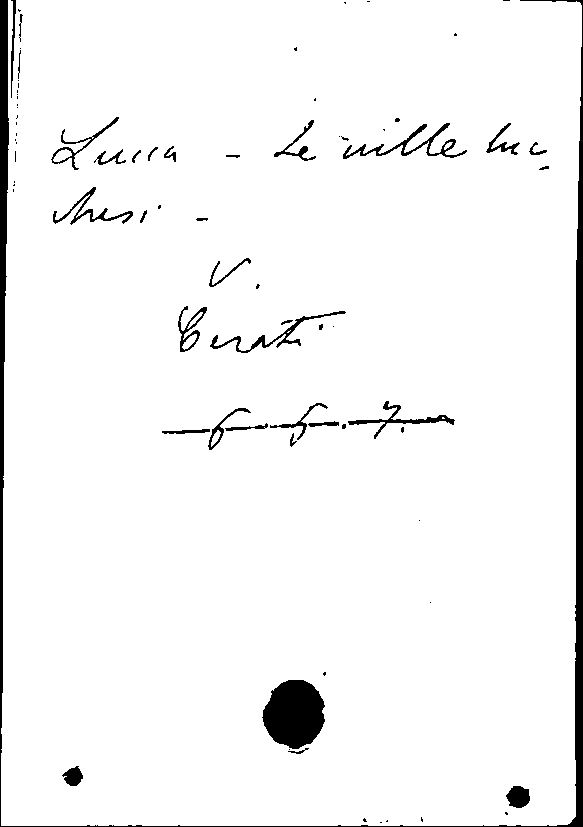 Lucca - Le ville luc-
chesi -
V.
Cerati
6. 5. 7.